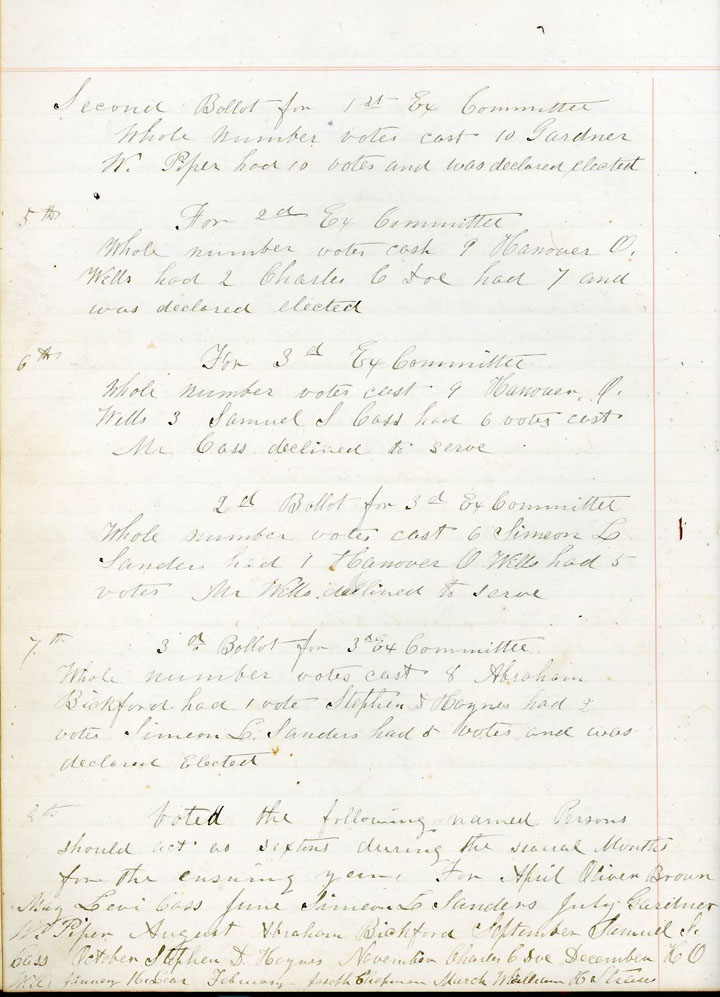 Second Ballot for 1st Ex Committee
Whole number votes cast 10 Gardner
W. Piper had 10 votes and was declared elected
5th For 2d Ex Committee
Whole number votes cash 9 Hanover O.
Wells had 2 Charles C Doe had 7 and
was declared elected
6th For 3d Ex Committee
Whole number votes cast 9 Hanover O.
Wells 3 Samuel S Cass had 6 votes cast
Mr Cass declined to serve
2d Ballot for 3d Ex Committee
Whole number votes cast 6 Simeon L
Sanders had 1 Hanover O Wells had 5
votes Mr Wells declined to serve
7th 3d Ballot for 3d Ex Committee
Whole number votes cast 8 Abraham
Bickford had 1 vote Stephen D Haynes had 2
votes Simeon L. Sanders had 5 votes and was
declared Elected
8th Voted the following named Persons
should act as sextons during the several Months
for the ensuing year. For April Oliver Brown
May Levi Cass June Simeon L Sanders July Gardner
W. Piper August Abraham Bickford September Samuel S.
Cass October Stephen D. Haynes November Charles C Doe December H O
Wells January February Joseph Chapman March William H